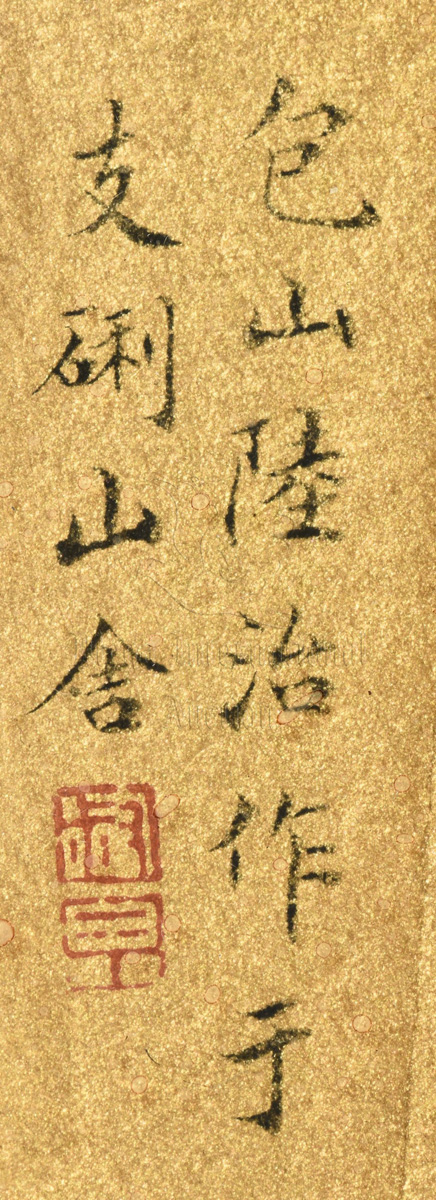 包山陸治作于
支硎山舍
叔平